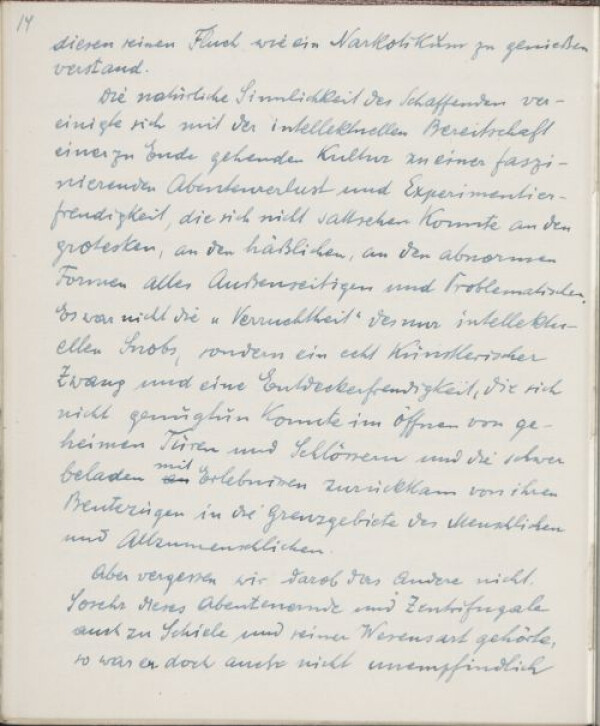 14
diesen seinen Fluch wie ein Narkotikum zu genießen
verstand.
Die natürliche Sinnlichkeit des Schaffenden ver-
einigte sich mit der intellektuellen Bereitschaft
einer zu Ende gehenden Kultur zu einer faszi-
nierenden Abenteuerlust und Experimentier-
freudigkeit, die sich nicht sattsehen konnte an den
grotesken, an den häßlichen, an den abnormen
Formen alles Außenseitigen und Problematischen.
Es war nicht die „Verruchtheit" des nur intellektu-
ellen Snobs, sondern ein echt künstlerischer
Zwang und eine Entdeckerfreudigkeit, die sich
nicht genugtun konnte im Öffnen von ge-
heimen Türen und Schlössern und die schwer
beladen mit Erlebnissen zurückkam von ihren
Beutezügen in die Grenzgebiete des Menschlichen
und Allzumenschlichen.
Aber vergessen wir darob das Andere nicht.
Sosehr dieses Abenteuernde und Zentrifugale
auch zu Schiele und seiner Wesensart gehörte,
so war er doch auch nicht unempfindlich